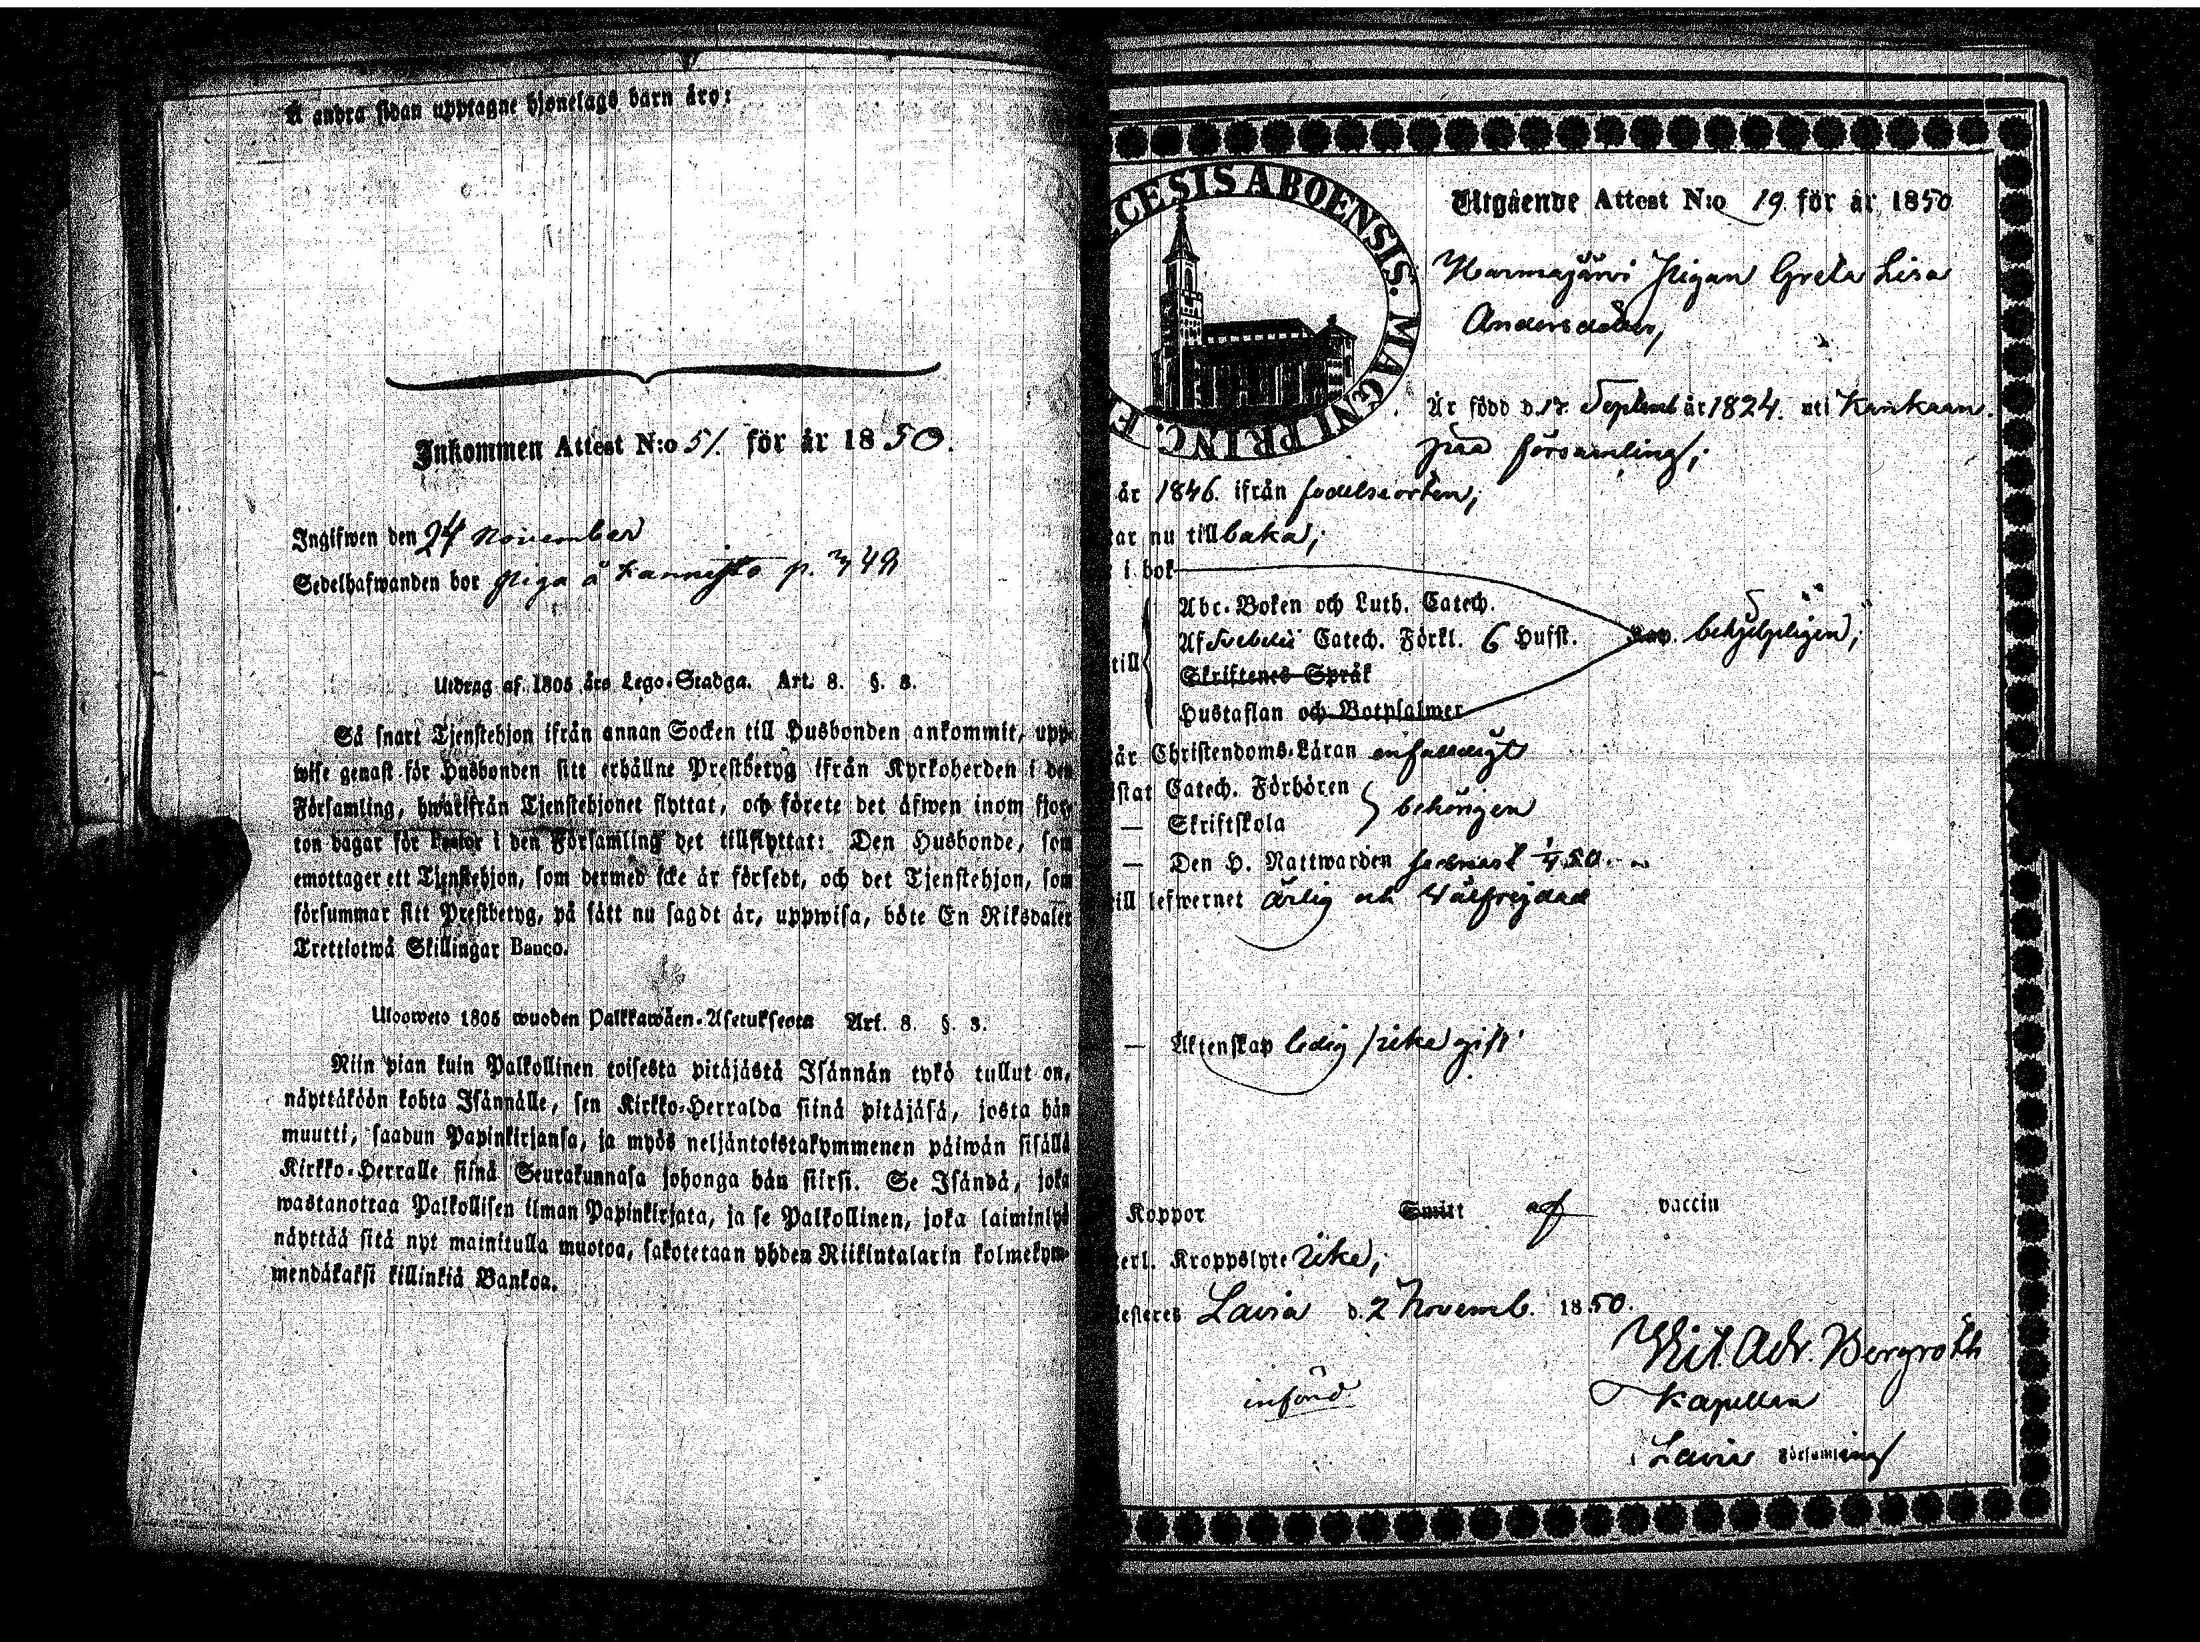 Å andra sidan upptagne hjonelags barn äro:
Inkommen Attest N:o 51. för år 1850.
Ingifwen den 24 November
Sedelhafwanden bor piga å Kannisto p. 349
Utdrag af 1805 års Lego-Stadga. Art. 8. §. 3.
Så snart Tjenstehjon ifrån annan Socken till Husbonden ankommit, upp-
wise genast för Husbonden sitt erhållne Prestbetyg ifrån Kyrkoherden i den
Församling, hwarifrån Tjenstehjonet flyttat, och förete det äfwen inom fjor-
ton dagar för Pastor i den Församling det tillflyttat: Den Husbonde, som
emottager ett Tjenstehjon, som dermed icke är försedt, och det Tjenstehjon, som
försummar sitt Prestbetyg, på sätt nu sagdt är, uppwisa, böte En Riksdaler
Trettiotwå Skillingar Banco.
Ulosweto 1805 wuoden Palkkawäen-Asetuksesta Art. 8. §. 3.
Niin pian kuin Palkollinen toisesta pitäjästä Isännän tykö tullut on,
näyttäköön kohta Isännälle, sen Kirkko-Herralda siinä pitäjäsä, josta hän
muutti, saadun Papinkirjansa, ja myös neljäntoistakymmenen päiwän sisällä
Kirkko-Herralle siinä Seurakunnasa johonga hän siirsi. Se Isändä, joka
wastanottaa Palkollisen ilman Papinkirjata, ja se Palkollinen, joka laiminlyö
näyttää sitä nyt mainitulla muotoa, sakotetaan yhden Riikintalarin kolmekym-
mendäkaksi killinkiä Bankoa.
CESIS ABOENSIS. MAGNI PRINC. F
Utgående Attest N:o 19 för år 1850
Harmajärvi Pigan Greta Lisa
Andersdotter,
Är född d. 17 Septemb år 1824. uti Kankaan-
pää församling;
år 1846. ifrån födelseorten;
tar nu tillbaka;
i bok
Abc-Boken och Luth. Catech.
Af Svebelii Catech. Förkl. 6 Hufst. behjelpligen;
till
Skriftenes Språk
Hustaflan och Botpsalmer
är Christendoms-Läran enfaldigt
istat Catech. Förhören
behörigen
— Skriftskola
— Den H. Nattwarden sednast 50.
till lefwernet ärlig och Wälfrejdad
— Äktenskap ledig icke gift
Koppor Smitt af vaccin
terl. Kroppslyte icke;
testeres Lavia d. 2 Novemb. 1850.
Vit Adr. Bergroth
införd
Kapellan
i Lavia Församling